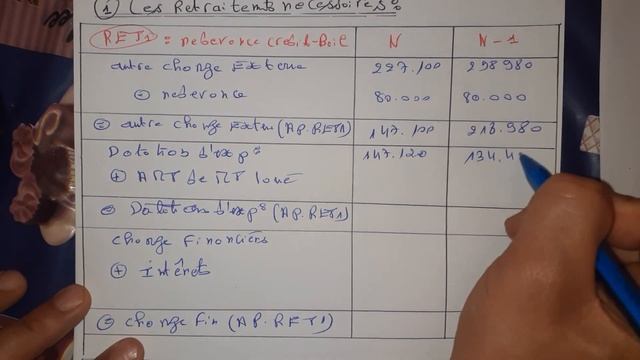 ① Les Retraitements necessaires:
RET1 = redevance crédit-Bail N N-1
autre charge Externe 227.100 298.980
⊖ redevance 80.000 80.000
⊜ autre charge Extern (AP.RET1) 147.100 218.980
Dotation d'exp° 147.120 134.4
⊕ AMT de MT loué
⊜ Dotation d'exp° (AP.RET1)
charge Financiers
⊕ Intérêts
⊜ charge Fin (AP.RET1)